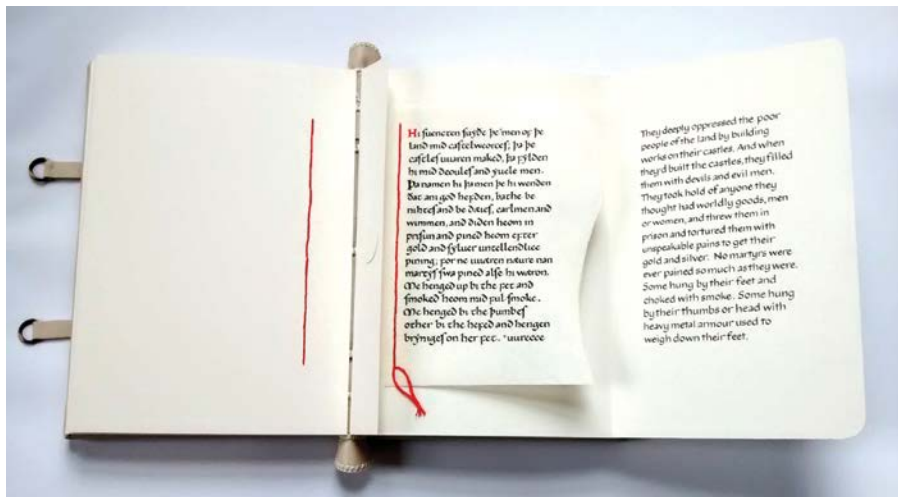 Hi ſuencten ſuyðe þe men of þe
land mid caſtelweorceſ; þa þe
caſtleſ uuaren maked, þa fylden
hi mid deouleſ and yuele men.
Þa namen hi þa men þe hi wenden
ðat ani god hefden, bathe be
nihteſ and be dæieſ, carlmen and
wimmen, and diden heom in
priſun and pined heom efter
gold and ſyluer untellendlice
pining; for ne uuæren næure nan
martyrſ ſwa pined alſe hi wæron.
Me henged up bi the fet and
ſmoked heom mid ful ſmoke.
Me henged bi the þumbeſ
other bi the hefed and hengen
brynigeſ on her fet.
They deeply oppressed the poor
people of the land by building
works on their castles. And when
they'd built the castles, they filled
them with devils and evil men.
They took hold of anyone they
thought had worldly goods, men
or women, and threw them in
prison and tortured them with
unspeakable pains to get their
gold and silver. No martyrs were
ever pained so much as they were.
Some hung by their feet and
choked with smoke. Some hung
by their thumbs or head with
heavy metal armour used to
weigh down their feet.